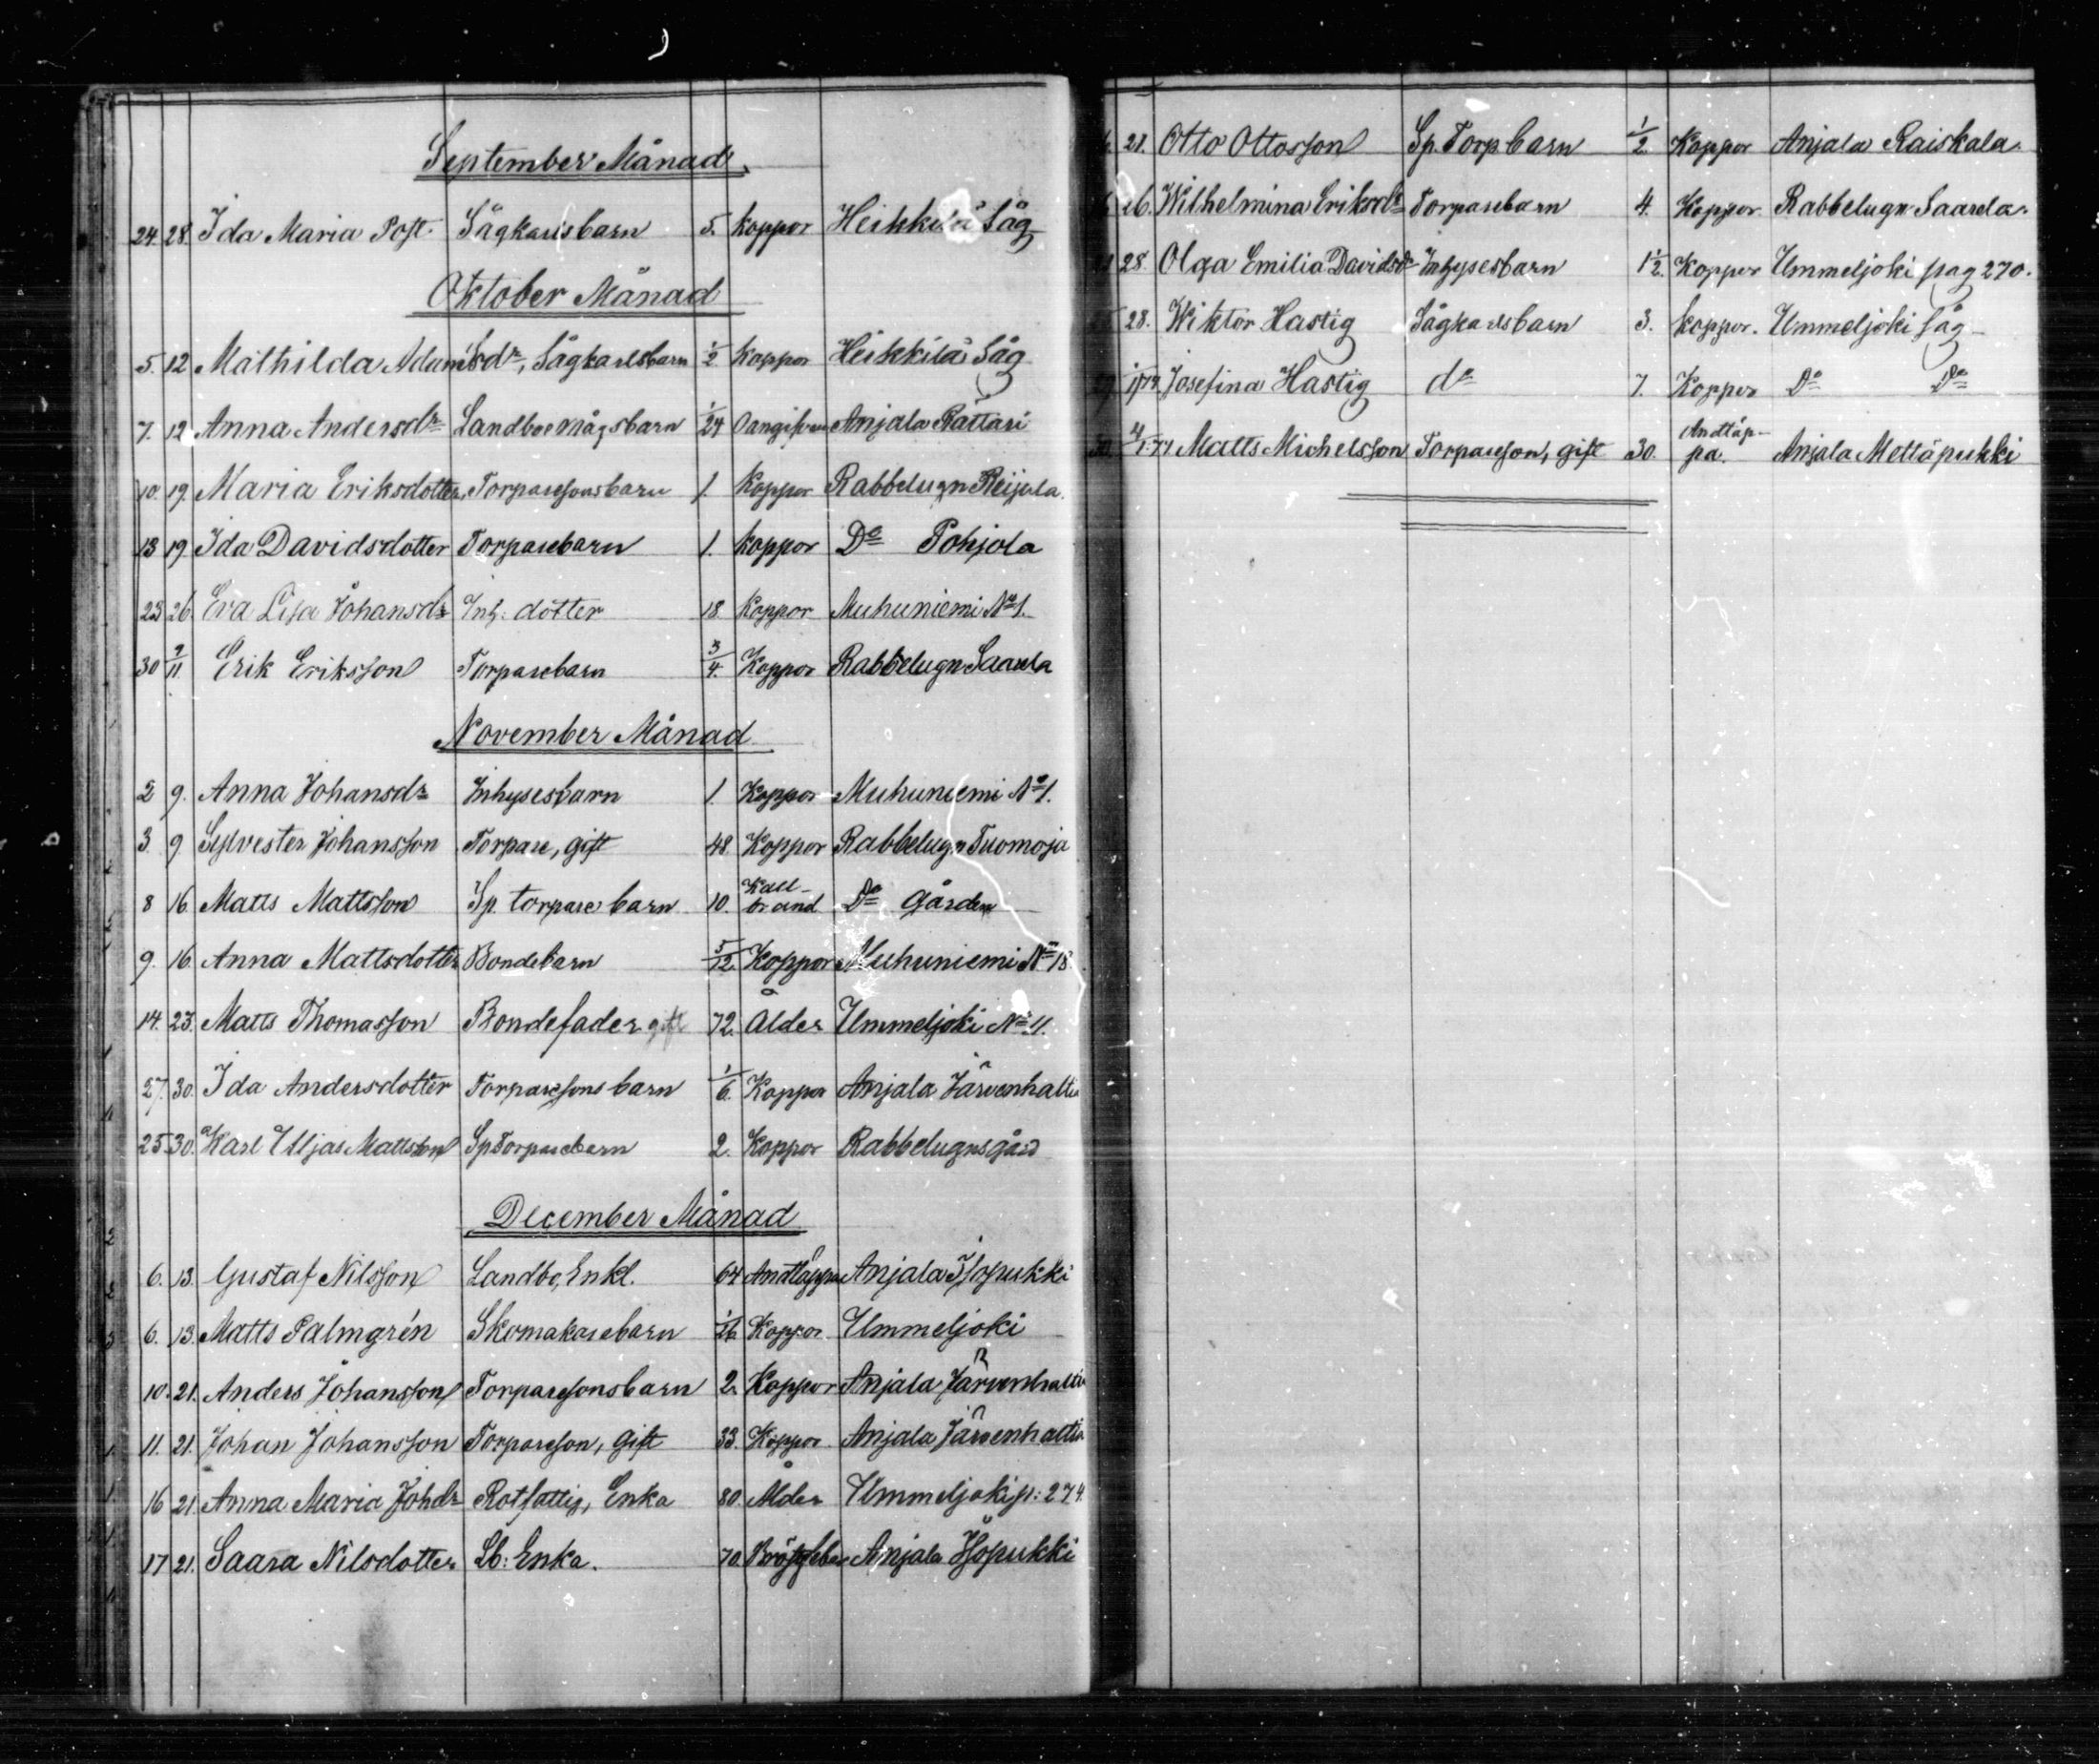 September Månad.
24. 28. Ida Maria Post. Sågkarlsbarn 5. Koppor Heikkilä Såg
Oktober Månad
5. 12 Mathilda Adamsdr, Sågkarlsbarn 1/2 Koppor Heikkilä Såg
7. 12 Anna Andersdr Landboemågsbarn 1/24 Oangifven Anjala Rättäri
10. 19. Maria Eriksdotter, Torparesonsbarn 1. Koppor Rabbelugn Reijula.
13 19. Ida Davidsdotter Torparebarn 1. Koppor Do Pohjola
23 26. Eva Lisa Johansdr Inh: dotter 18 Koppor Muhuniemi No 1.
30 9/11. Erik Eriksson Torparebarn 3/4. Koppor Rabbelugn Saarela
November Månad
2 9. Anna Johansdr Inhysesbarn 1. Koppor Muhuniemi No 1.
3. 9 Sylvester Johansson Torpare, gift 48. Koppor Rabbelugn Tuomoja
8 16 Matts Mattsson Sp. torpare barn 10. Kallbrand Do Gården
9. 16. Anna Mattsdotter Bondebarn 5/12. Koppor Muhuniemi No 18.
14. 23. Matts Thomasson Bondefader gift 72. Ålder Ummeljoki No 11.
27. 30. Ida Andersdotter Torparesons barn 1/6. Koppor Anjala Järvenhaltia
25 30. Karl Eljas Mattsson Sp Torparebarn 2. Koppor Rabbelugnsgård
December Månad
6. 13. Gustaf Nilsson Landbo, Enkl. 64 Andtäppa Anjala Isopukki
6. 13. Matts Palmgrén Skomakarebarn Koppor Ummeljoki
10. 21. Anders Johansson Torparesonsbarn 2. Koppor Anjala Järvenhaltia
11. 21. Johan Johansson Torpareson, gift 33. Koppor Anjala Järvenhaltia
16 21. Anna Maria Johdr Rotfattig, Enka 80. Ålder Ummeljoki p: 274.
17 21. Saara Nilsdotter Lb: Enka. 70. Anjala Isopukki
21. Otto Ottosson Sp. Torp barn 1/2. Koppor Anjala Raiskala.
26. Wilhelmina Eriksdr Torparebarn 4. Koppor. Rabbelugn Saarela.
28. Olga Emilia Davidsdr Inhysesbarn 1 1/2. Koppor Ummeljoki pag 270.
28. Wiktor Hastig Sågkarlsbarn 3. Koppor. Ummeljoki Såg
Josefina Hastig do 7. Koppor Do Do
Matts Michelsson Torpareson, gift 30. Andtäppa. Anjala Mettäpukki